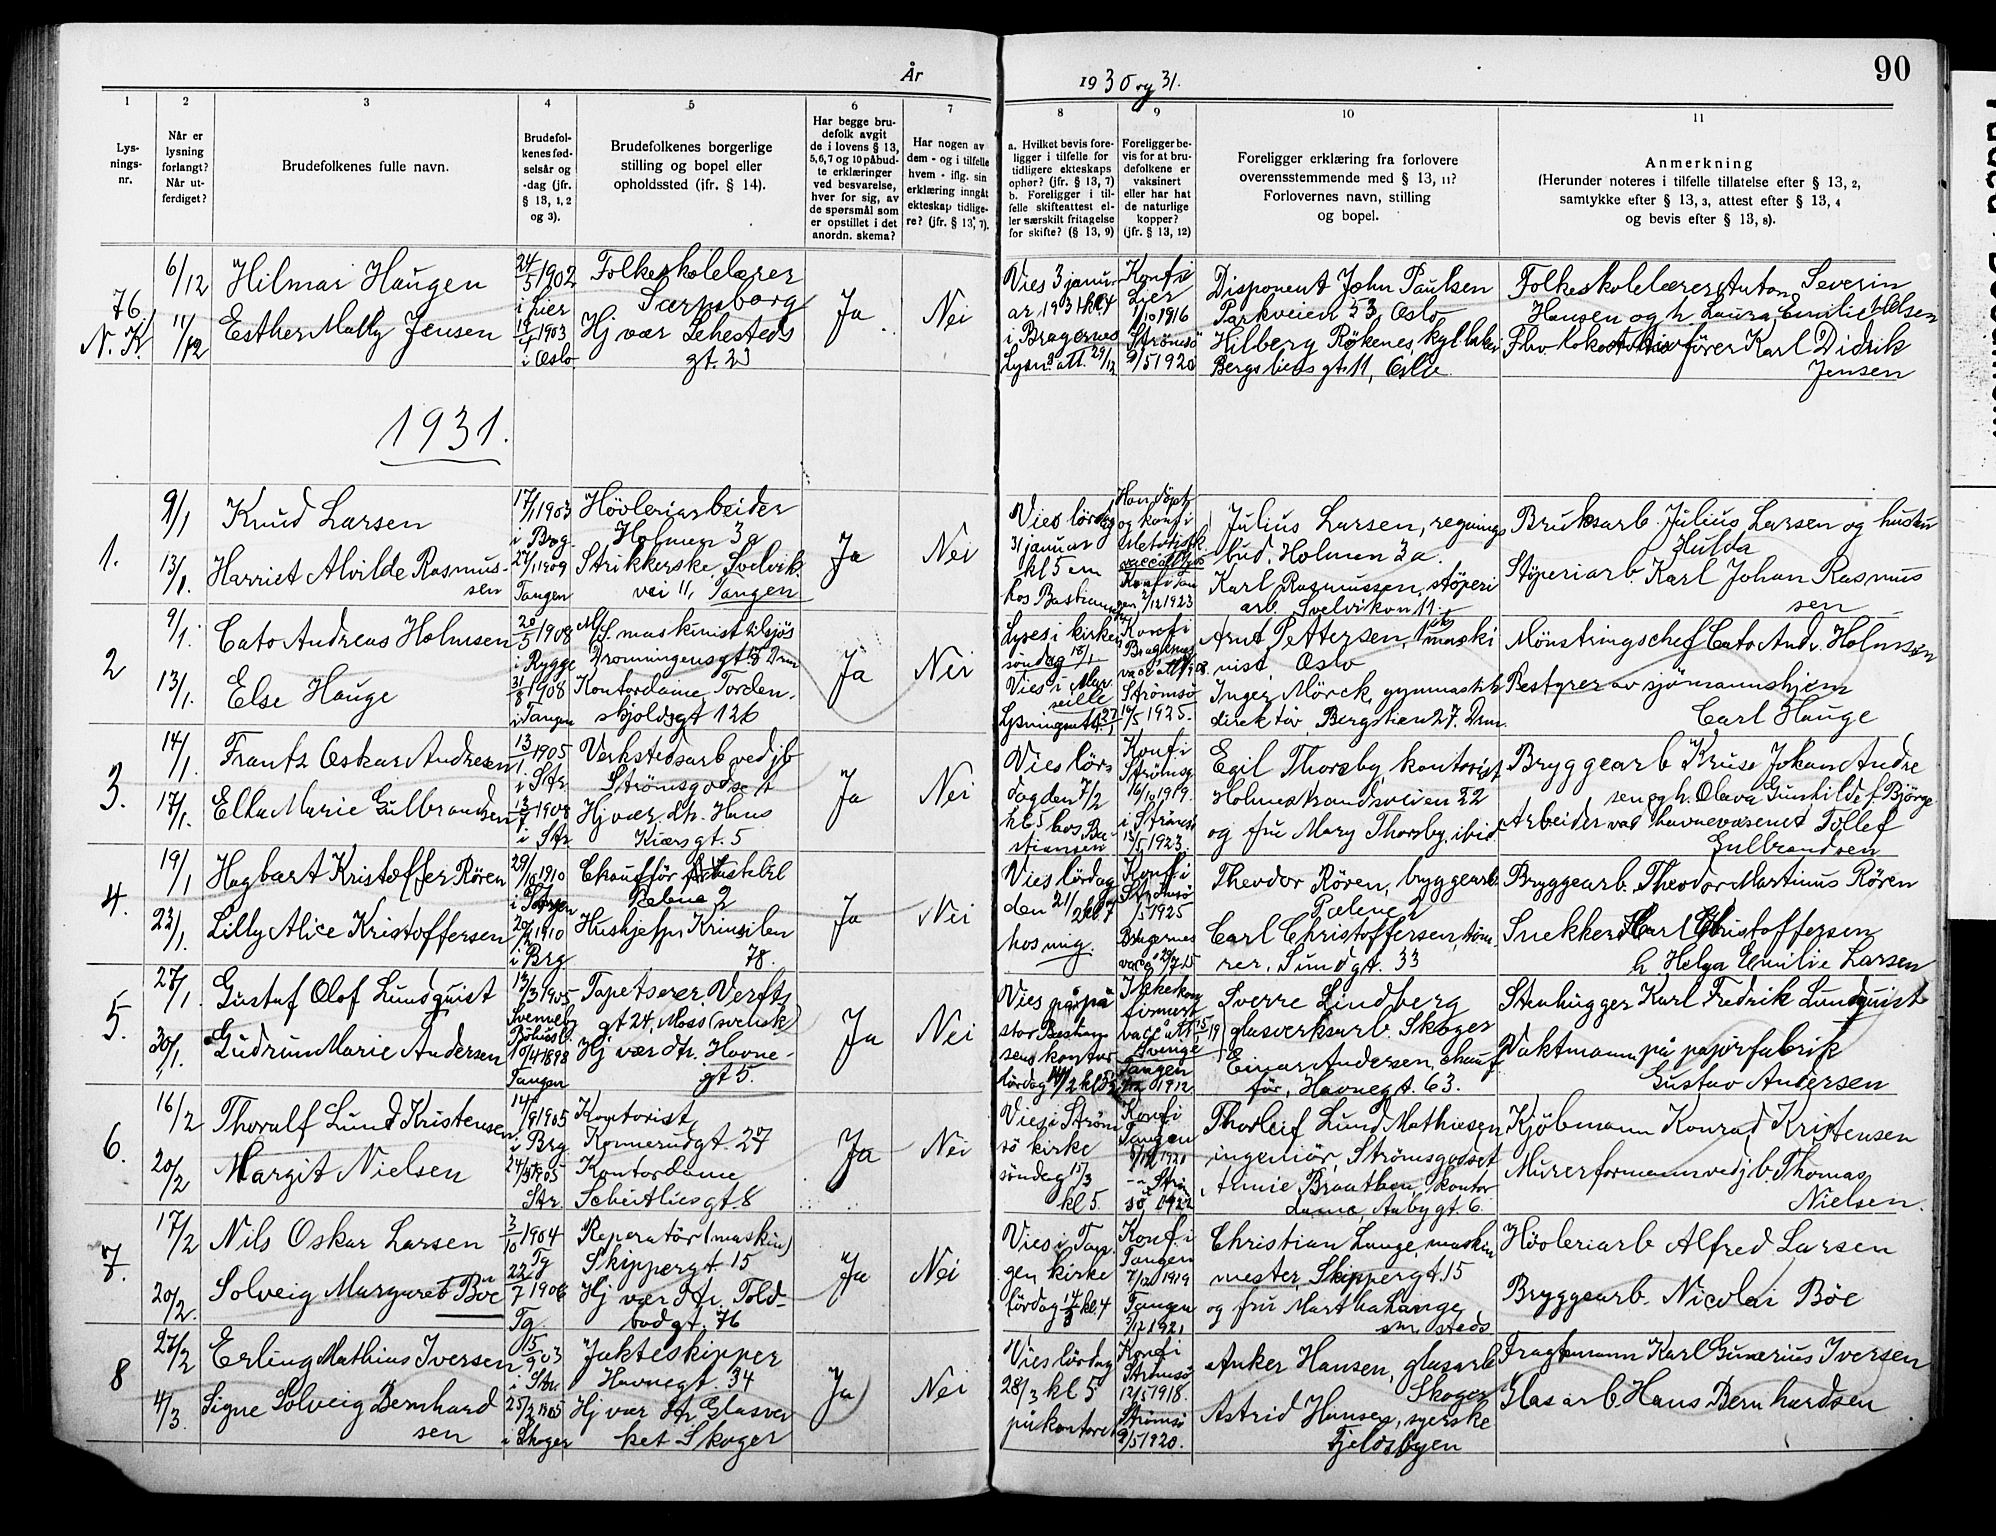 År
1930 og 31.
90
1
2
3
4
5
6
7
8
9
10
11
Lys-
nings-
nr.
Når er
lysning
forlangt?
Når ut-
ferdiget?
Brudefolkenes fulle navn.
Brudefol-
kenes fød-
selsår og
-dag (jfr.
§ 13, 1, 2
og 3).
Brudefolkenes borgerlige
stilling og bopel eller
opholdssted (jfr. § 14).
Har begge bru-
defolk avgit
de i lovens § 13,
5, 6, 7 og 10 påbud-
te erklæringer
ved besvarelse,
hver for sig, av
de spørsmål som
er opstillet i det
anordn. skema?
Har nogen av
dem - og i tilfelle
hvem - iflg. sin
erklæring inngåt
ekteskap tidlige-
re? (jfr. § 13, 7).
a. Hvilket bevis fore-
ligger i tilfelle for
tidligere ekteskaps
ophør? (jfr. § 13, 7)
b. Foreligger i til-
felle skifteattest el-
ler særskilt fritagelse
for skifte? (§ 13, 9)
Foreligger be-
vis for at bru-
defolkene er
vaksinert
eller har hat
de naturlige
kopper?
(jfr. § 13, 12)
Foreligger erklæring fra forlovere
overensstemmende med § 13, 11?
Forlovernes navn, stilling
og bopel.
Anmerkning
(Herunder noteres i tilfelle tillatelse efter § 13, 2,
samtykke efter § 13, 3, attest efter § 13, 4
og bevis efter § 13, 8).
76.
N. K.
6/12
11/12
Hilmar Haugen
Esther Mally Jensen
24/5 1902
i Lier
1903
i Oslo
Folkeskolelærer
Sarpsborg
Hj vær Lehesteds
gt. 23
Ja
Nei
Vies 3 janu-
ar 1931 kl 4
i Bragernes
Lysn. att. 29/12
Konf i
Lier
1/10 1916
Strömsö
9/5 1920
Disponent John Paulsen
Parkveien 53, Oslo
Hilberg Rökenes, kgl.
Bergsliens gt 11, Oslo
Folkeskolelærer Anton Severin
Haugen og h. Laura Emilie
Karl Didrik
Jensen
1931.
1.
9/1
13/1.
Knud Larsen
Harriet Alvilde Rasmus-
sen
17/1 1903
i Brg.
27/1 1909
Tangen
Hövleriarbeider
Holmen 3a
Strikkerske, Svelvik
vei 11, Tangen
Ja
Nei
Vies lördag
31 januar
kl 5 em
hos Bastiansen
Han döpt
og konf i
Metodistk
1923
Julius Larsen, regnings
bud. Holmen 3a.
Karl Rasmussen, støperi
arb. Svelvikvn 11.
Bruksarb. Julius Larsen og hustru
Hulda
Støperiarb. Karl Johan Rasmus
sen
2
9/1.
13/1.
Cato Andreas Holmsen
Else Hauge
20/5 1908
i Rygge
31/8 1908
i Tangen
M/S. maskinist tilsjös
Dronningensgt 13 Drm
Kontordame, Torden-
skjoldsgt 126
Ja
Nei
Lyses i kirken
söndag 18/1
Vies i Mar-
seille
Konf i
Bragernes
Strömsö
1925.
Arnt Pettersen, 1ste maski
nist, Oslo
Inger Mörck, gymnastik
direktör, Bergstien 27. Drm.
Mönstringschef Cato Andr. Holmsen
Bestyrer av sjömannshjem
Carl Hauge
3.
14/1.
17/1.
Frantz Oskar Andresen
Elka Marie Gulbrandsen
13/1 1905
i Str.
1908
i Str
Verkstedsarb ved jb
Strömsgodset
Hj vær. dtr. Hans
Kiærsgt. 5
Ja
Nei
Vies lörs
dag den 7/2
kl 5 hos Ba-
stiansen
Konf i
Strömsö
1919.
i Strömsö
1923.
Egil Thorsby, kontorist
Holmestrandsveien 22
og fru Mary Thorsby, ibid
Bryggearb Kruse Johan Andre
sen og h. Olava Gunhilde f. Björge
Arbeider ved havnevæsenet Tollef
Gulbrandsen
4.
19/1
23/1.
Hagbart Kristoffer Rören
Lilly Alice Kristoffersen
29/10 1910
1910
i Brg
Chauffør
Pælene 2
Hushjelp, Krinsilen
78.
Ja
Nei
Vies lördag
den 21/2 kl 7
hos mig.
Konf i
Strömsö
1925
Bragernes
Theodor Rören, bryggearb
Pælene 2
Carl Christoffersen, töm-
rer. Sundgt. 33
Bryggearb. Theodor Martinus Rören
Snekker Carl Christoffersen
h. Helga Emilie Larsen
5.
27/1.
30/1.
Gustaf Olof Lundquist
Gudrun Marie Andersen
13/3 1905
10/4 1898
Tangen
Tapetserer. Verfts
gt 24, Moss (svensk)
Hj vær dtr. Havne-
gt 5.
Ja
Nei
Vies på pa
stor Bastian
sens kontor
lördag
Ikke kon
firmert
Sverige
Tangen
1912.
Sverre Lindberg
glasverksarb. Skoger
Einar Andersen, chauf
för, Havnegt. 63.
Stenhugger Karl Fredrik Lundquist
Vaktmann på papirfabrik
Gustav Andersen
6.
16/2
20/2
Thoralf Lund Kristensen
Margit Nielsen
14/9 1905
i Brg
1905
Str.
Kontorist,
Konnerudgt. 27
Kontordame
Scheitliesgt. 8
Ja
Nei
Vies i Ström
sö kirke
söndag 15/3
kl 5.
Konf i
Tangen
Strö
sö, 1922
Thorleif Lund Mathiesen
ingeniör, Strömsgodset
Annie Braathen, kontor
dame, Aabygt. 6.
Kjöbmann Konrad Kristensen
Murerformann ved j.b. Thomas
Nielsen.
7.
17/2
20/2.
Nils Oskar Larsen
Solveig Margaret Böe
3/10 1904
Tg
22/7 1906
Tg.
Reparatör (maskin)
Skippergt. 15
Hj vær dtr. Told-
bodgt. 76
Ja
Nei
Vies i Tan-
gen kirke
lördag 14/3 kl 4
Konf i
Tangen
7/12 1919
Tangen
1921
Christian Lange, maskin
mester, Skippergt. 15
og fru Martha Lange,
sm. steds
Hövleriarb Alfred Larsen
Bryggearb. Nicolai Böe
8
27/2
4/3.
Erling Mathius Iversen
Signe Solveig Bernhard
sen
15/9 03
i Str
25/2 1905
i Skoger
Jakteskipper
Havnegt. 34
Hj vær dtr. Glasver
ket Skoger
Ja
Nei
Vies lördag
28/3 kl 5
på kontoret
Konf i
Strömsö
12/5 1918.
Strömsö
9/5 1920.
Anker Hansen, glasarb
Skoger
Astrid Hansen, syerske
Fjeldsbyen
Fragtemann Karl Gunerius Iversen
Glasarb. Hans Bernhardsen